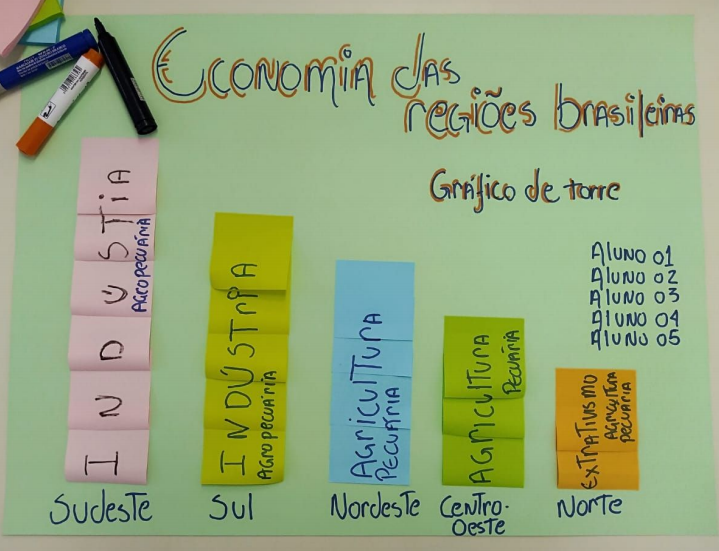 Economia das
regiões brasileiras
Gráfico de torre
Aluno 01
Aluno 02
Aluno 03
Aluno 04
Aluno 05
INDÚSTIA
AGROPECUÁRIA
INDÚSTRIA
AGROPECUÁRIA
AGRICULTURA
PECUÁRIA
AGRICULTURA
PECUÁRIA
EXTRATIVISMO
AGRICULTURA
PECUÁRIA
Sudeste
Sul
Nordeste
Centro-
Oeste
Norte